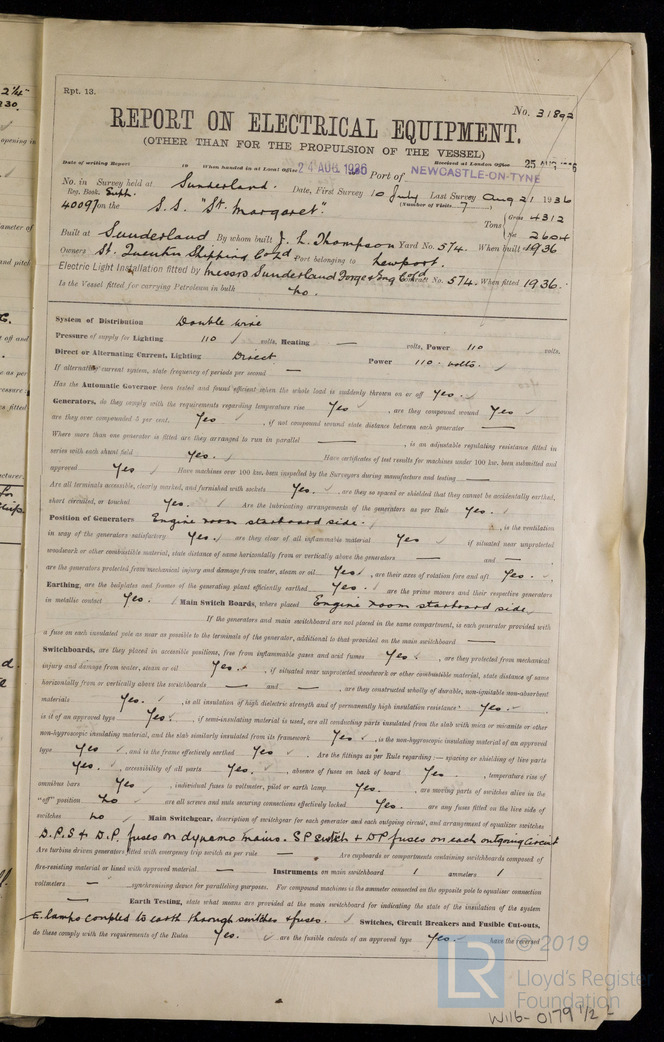 Rpt. 13.
No. 31892
REPORT ON ELECTRICAL EQUIPMENT.
(OTHER THAN FOR THE PROPULSION OF THE VESSEL)
Date of writing Report 19 When handed in at Local Office 24 AUG 1936 Port of NEWCASTLE-ON-TYNE Received at London Office 25 AUG 1936
No. in Survey held at Sunderland. Date, First Survey 10 July Last Survey Aug 21 1936
Reg. Book. Supp. (Number of Visits 7)
40097 on the S.S. "St. Margaret". Tons { Gross 4312
Net 2604
Built at Sunderland By whom built J. L. Thompson Yard No. 574. When built 1936
Owners St. Quentin Shipping Co Ld Port belonging to Newport.
Electric Light Installation fitted by Messrs Sunderland Forge & Eng Co Ld Contract No. 574. When fitted 1936.
Is the Vessel fitted for carrying Petroleum in bulk No.
System of Distribution Double wire
Pressure of supply for Lighting 110 volts, Heating — volts, Power 110 volts.
Direct or Alternating Current, Lighting Direct Power 110 volts.
If alternating current system, state frequency of periods per second —
Has the Automatic Governor been tested and found efficient when the whole load is suddenly thrown on or off Yes.
Generators, do they comply with the requirements regarding temperature rise Yes , are they compound wound Yes
are they over compounded 5 per cent. Yes , if not compound wound state distance between each generator —
Where more than one generator is fitted are they arranged to run in parallel — , is an adjustable regulating resistance fitted in
series with each shunt field Yes. Have certificates of test results for machines under 100 kw. been submitted and
approved Yes Have machines over 100 kw. been inspected by the Surveyors during manufacture and testing —
Are all terminals accessible, clearly marked, and furnished with sockets Yes. , are they so spaced or shielded that they cannot be accidentally earthed,
short circuited, or touched Yes. Are the lubricating arrangements of the generators as per Rule Yes.
Position of Generators Engine room starboard side. , is the ventilation
in way of the generators satisfactory Yes. are they clear of all inflammable material Yes if situated near unprotected
woodwork or other combustible material, state distance of same horizontally from or vertically above the generators — and — ,
are the generators protected from mechanical injury and damage from water, steam or oil Yes , are their axes of rotation fore and aft Yes.
Earthing, are the bedplates and frames of the generating plant efficiently earthed Yes. are the prime movers and their respective generators
in metallic contact Yes. Main Switch Boards, where placed Engine room starboard side
If the generators and main switchboard are not placed in the same compartment, is each generator provided with
a fuse on each insulated pole as near as possible to the terminals of the generator, additional to that provided on the main switchboard —
Switchboards, are they placed in accessible positions, free from inflammable gases and acid fumes Yes , are they protected from mechanical
injury and damage from water, steam or oil Yes. , if situated near unprotected woodwork or other combustible material, state distance of same
horizontally from or vertically above the switchboards — and — , are they constructed wholly of durable, non-ignitable non-absorbent
materials Yes. , is all insulation of high dielectric strength and of permanently high insulation resistance Yes.
is it of an approved type Yes , if semi-insulating material is used, are all conducting parts insulated from the slab with mica or micanite or other
non-hygroscopic insulating material, and the slab similarly insulated from its framework Yes , is the non-hygroscopic insulating material of an approved
type Yes , and is the frame effectively earthed Yes . Are the fittings as per Rule regarding:— spacing or shielding of live parts
Yes. , accessibility of all parts Yes. , absence of fuses on back of board Yes. , temperature rise of
omnibus bars Yes , individual fuses to voltmeter, pilot or earth lamp Yes. , are moving parts of switches alive in the
"off" position No are all screws and nuts securing connections effectively locked Yes. are any fuses fitted on the live side of
switches No Main Switchgear, description of switchgear for each generator and each outgoing circuit, and arrangement of equalizer switches
D.P.S & D.P. fuses on dynamo mains. SP switch & DP fuses on each outgoing circuit
Are turbine driven generators fitted with emergency trip switch as per rule — . Are cupboards or compartments containing switchboards composed of
fire-resisting material or lined with approved material — Instruments on main switchboard 1 ammeters 1
voltmeters — synchronising device for paralleling purposes. For compound machines is the ammeter connected on the opposite pole to equaliser connection
— Earth Testing, state what means are provided at the main switchboard for indicating the state of the insulation of the system
E. lamps coupled to earth through switches & fuses. Switches, Circuit Breakers and Fusible Cut-outs,
do these comply with the requirements of the Rules Yes. are the fusible cutouts of an approved type Yes. have the reversed
© 2019
LR Lloyd's Register
Foundation
W116-0179 1/2